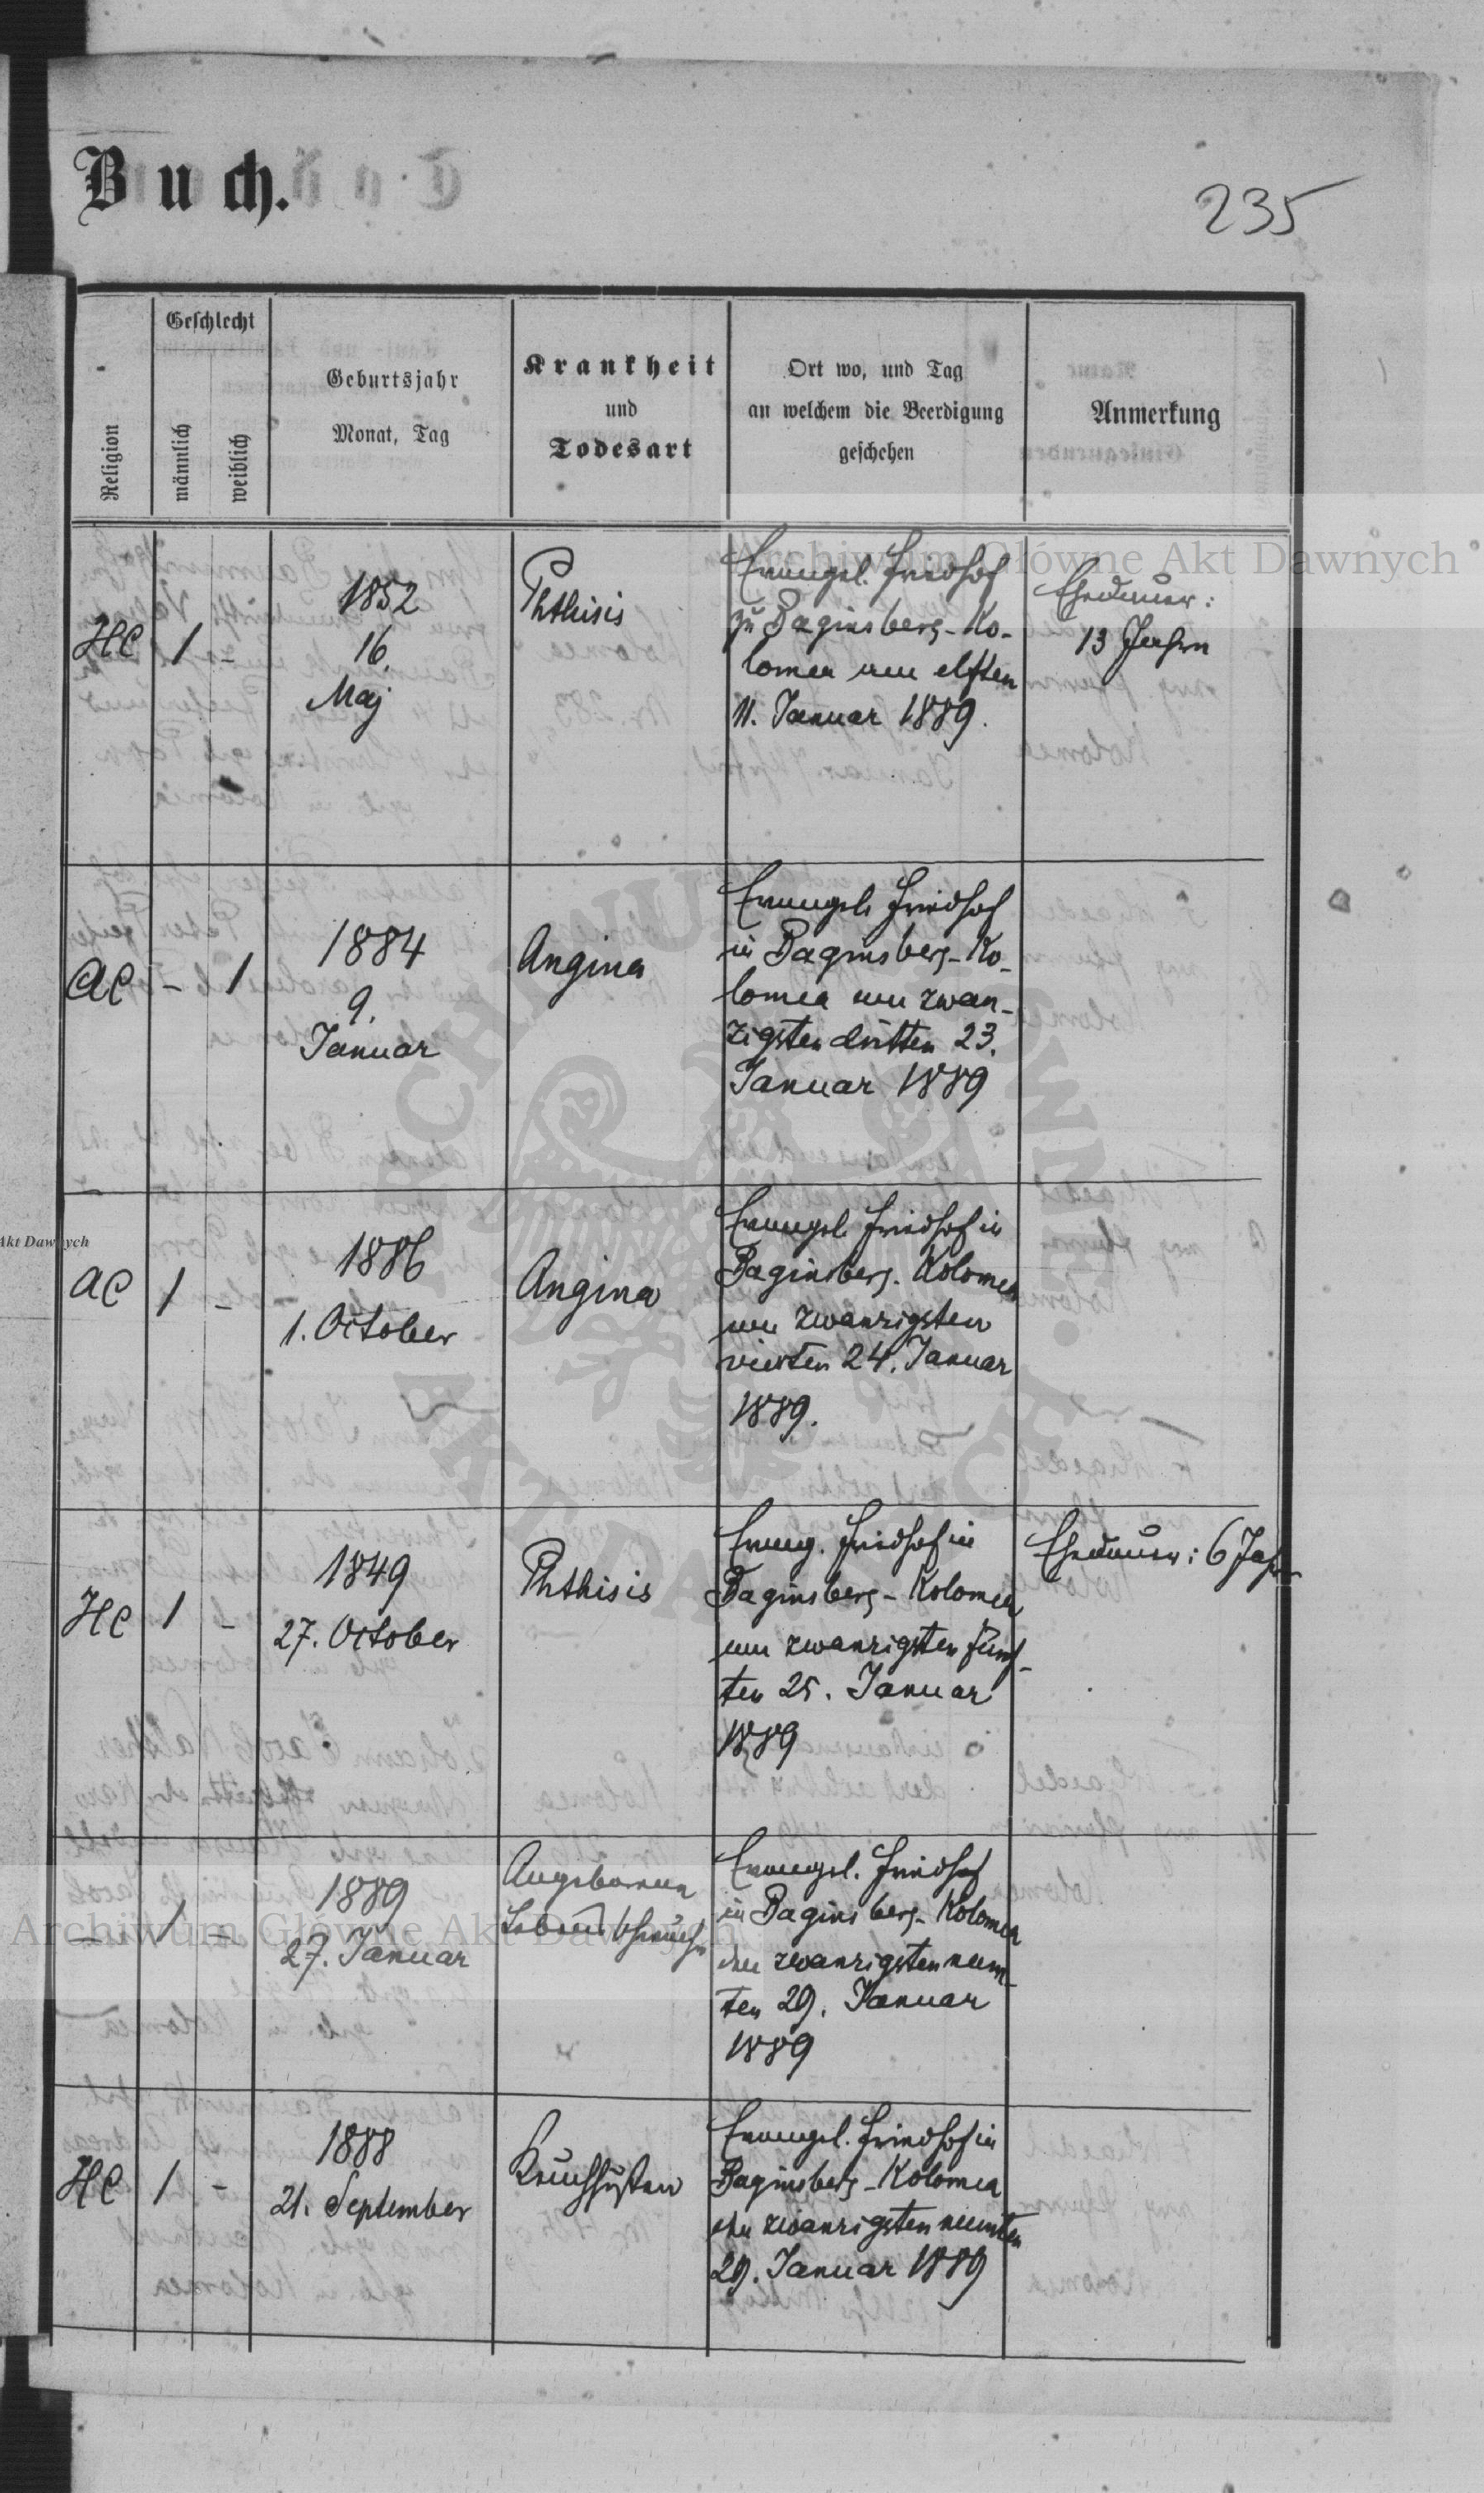 Buch.
235
Religion
Geschlecht
männlich
weiblich
Geburtsjahr
Monat, Tag
Krankheit
und
Todesart
Ort wo, und Tag
an welchem die Beerdigung
geschehen
Anmerkung
HC
1
-
1852
16.
Maj
Phthisis
Evangel. Friedhof
zu Baginsberg-Ko-
lomea am elften
11. Januar 1889.
Ehedauer:
13 Jahre
AC
-
1
1884
9.
Januar
Angina
Evangel. Friedhof
in Baginsberg-Ko-
lomea am zwan-
zigsten dritten 23.
Januar 1889
AC
1
-
1886
1. October
Angina
Evangel. Friedhof in
Baginsberg-Kolomea
am zwanzigsten
vierten 24. Januar
1889.
HC
1
-
1849
27. October
Phthisis
Evang. Friedhof in
Baginsberg-Kolomea
am zwanzigsten fünf-
ten 25. Januar
1889
Ehedauer: 6 Jahre
-
1
-
1889
27. Januar
Angeborene
Lebensschwäche
Evangel. Friedhof
in Baginsberg-Kolomea
den zwanzigsten neun-
ten 29. Januar
1889
HC
1
-
1888
21. September
Keuchhusten
Evangel. Friedhof in
Baginsberg-Kolomea
den zwanzigsten neunten
29. Januar 1889
Archiwum Główne Akt Dawnych
Akt Dawnych
Archiwum Główne Akt Dawnych
ARCHIWUM GŁÓWNE AKT DAWNYCH